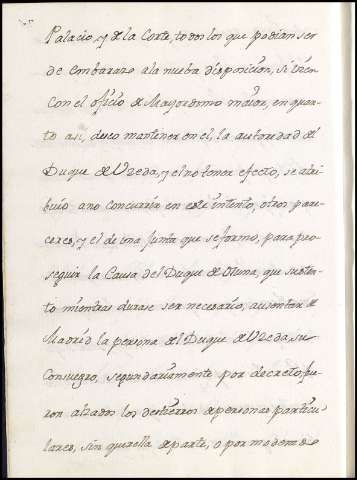 Palacio, y de la Corte, todos los que podian ser
de embarazo a la nueba disposicion, si bien
con el oficio de Mayordomo maior, en quan-
to a si, deseo mantener en el, la autoridad del
Duque de Uzeda, y el no tener efecto, se atri
buio a no concurrir en este intento, otros pare
ceres, y el de una Junta que se formo, para pro
seguir la Causa del Duque de Osuna, que su
to mientras durase ser necesario, ausentar de
Madrid la persona del Duque de Uzeda, su
Consuegro, segundariamente por decreto, fue
ron alzados los destierros de personas particu
lares, sin querella de parte, o por modo de